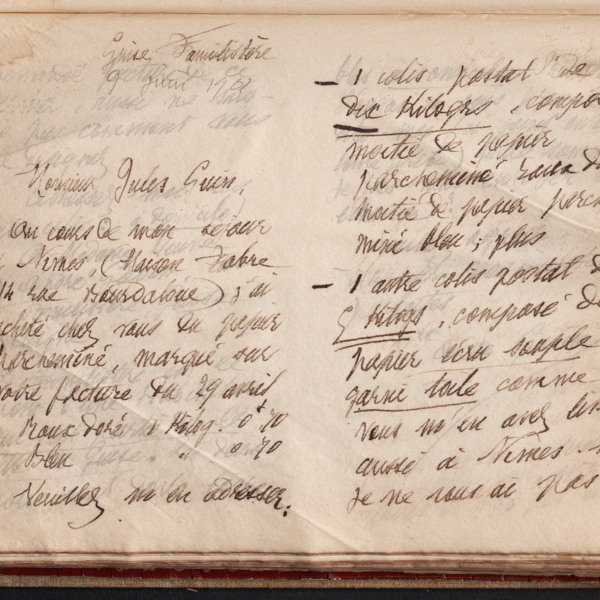 Guise Familistère
9 Juin
Monsieur Jules Guin,
Au cours de mon séjour
Nîmes, (Maison Fabre
14 rue Bourdaloue) j'ai
cheté chez vous du papier
parcheminé, marqué sur
votre facture du 29 avril
Roux doré 1 Kilog. 0f 70
bleu " " 0 70
Veuillez m'en adresser:
— 1 colis postal de
dix Kilogs, compos
moitié de papier
parcheminé roux d
moitié de papier parch
miné bleu; plus
— 1 autre colis postal d
5 Kilogs, composé d
papier écru souple
garni toile comme
vous m'en avez
aussi à Nîmes.
Je ne vous ai pas